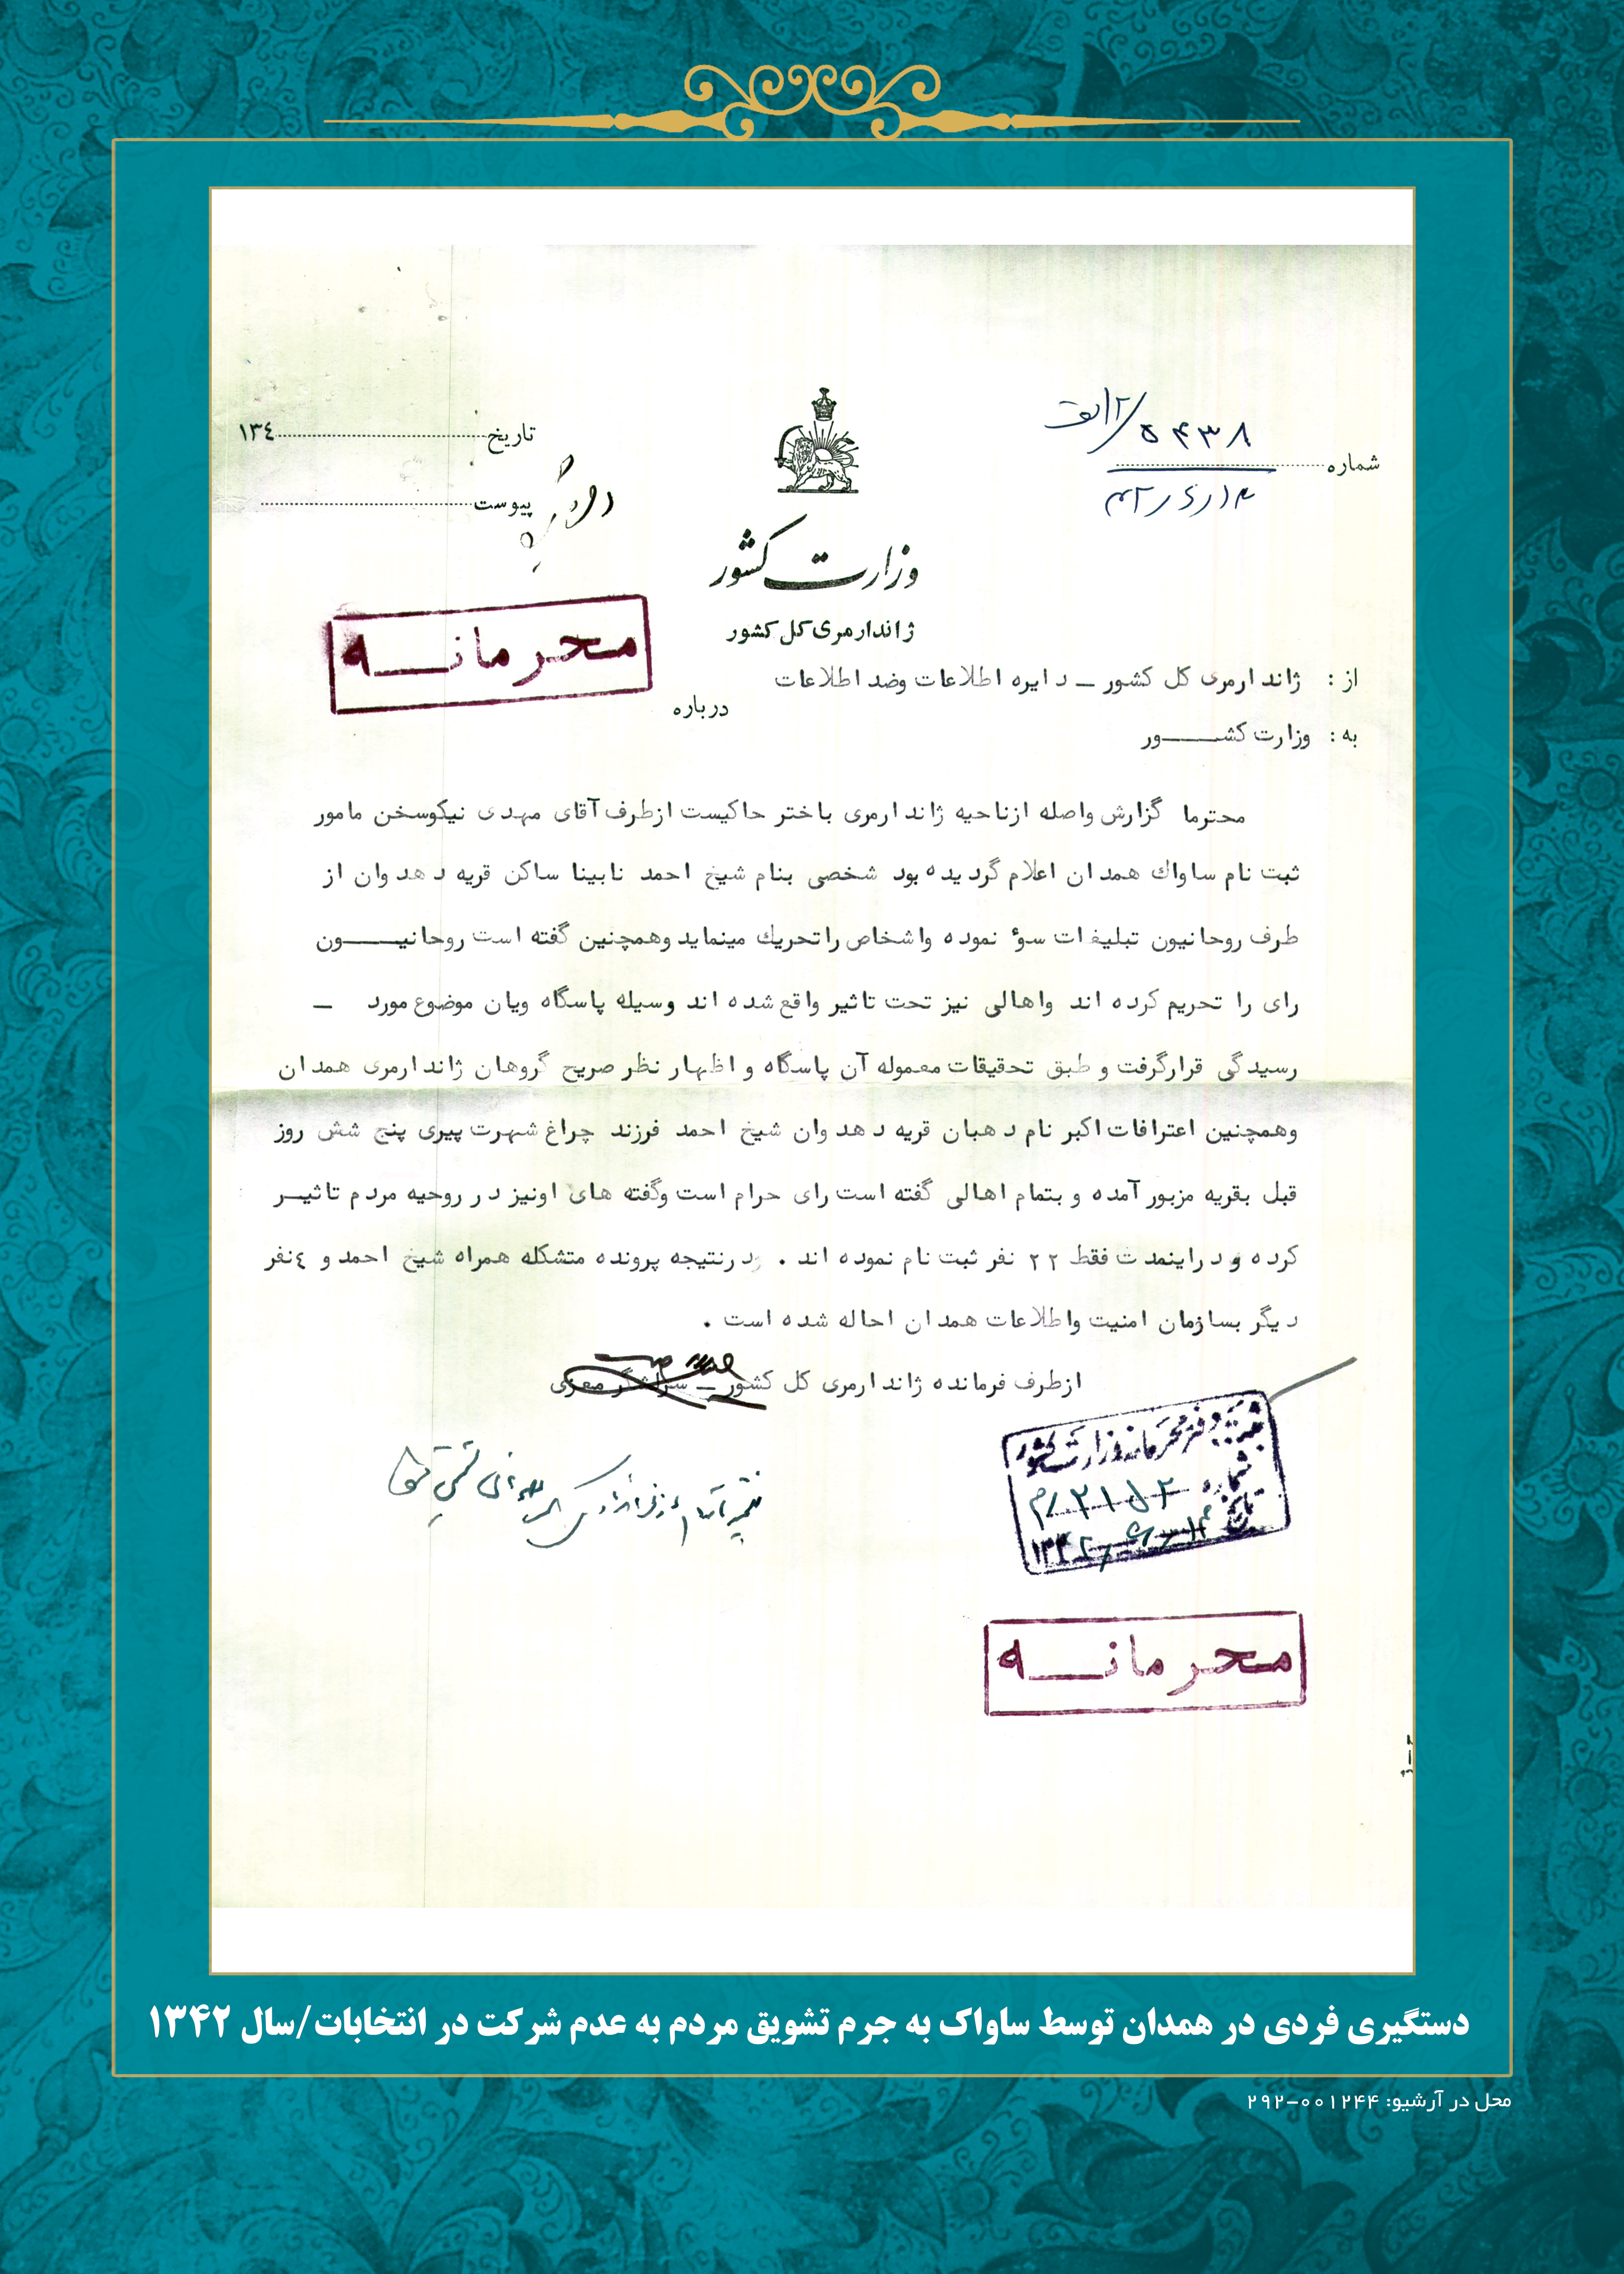 شماره ۵۴۳۸
تاریخ ۱۳٤
پیوست
وزارت کشور
ژاندارمری کل کشور
محرمانه
از : ژاندارمری کل کشور ـ دایره اطلاعات وضد اطلاعات
درباره
به : وزارت کشـــور
محترما گزارش واصله ازناحیه ژاندارمری باختر حاکیست ازطرف آقای مهدی نیکوسخن مامور
ثبت نام ساواك همدان اعلام گردیده بود شخصی بنام شیخ احمد نابینا ساکن قریه دهدوان از
طرف روحانیون تبلیغات سوء نموده واشخاص راتحریك مینماید وهمچنین گفته است روحانیـــون
رای را تحریم کرده اند واهالی نیز تحت تاثیر واقع شده اند وسیله پاسگاه ویان موضوع مورد ـ
رسیدگی قرارگرفت و طبق تحقیقات معموله آن پاسگاه و اظهار نظر صریح گروهان ژاندارمری همدان
وهمچنین اعترافات اکبر نام دهبان قریه دهدوان شیخ احمد فرزند چراغ شهرت پیری پنج شش روز
قبل بقریه مزبور آمده و بتمام اهالی گفته است رای حرام است وگفته های اونیز در روحیه مردم تاثیـر
کرده و دراینمدت فقط ۲۲ نفر ثبت نام نموده اند . درنتیجه پرونده متشکله همراه شیخ احمد و ٤نفر
دیگر بسازمان امنیت واطلاعات همدان احاله شده است .
ازطرف فرمانده ژاندارمری کل کشور ـ سرلشگر معزی
ثبت دفتر محرمانه وزارت کشور
شماره
تاریخ
محرمانه
دستگیری فردی در همدان توسط ساواک به جرم تشویق مردم به عدم شرکت در انتخابات/سال ۱۳۴۲
محل در آرشیو: ۰۰۱۲۴۴-۲۹۲